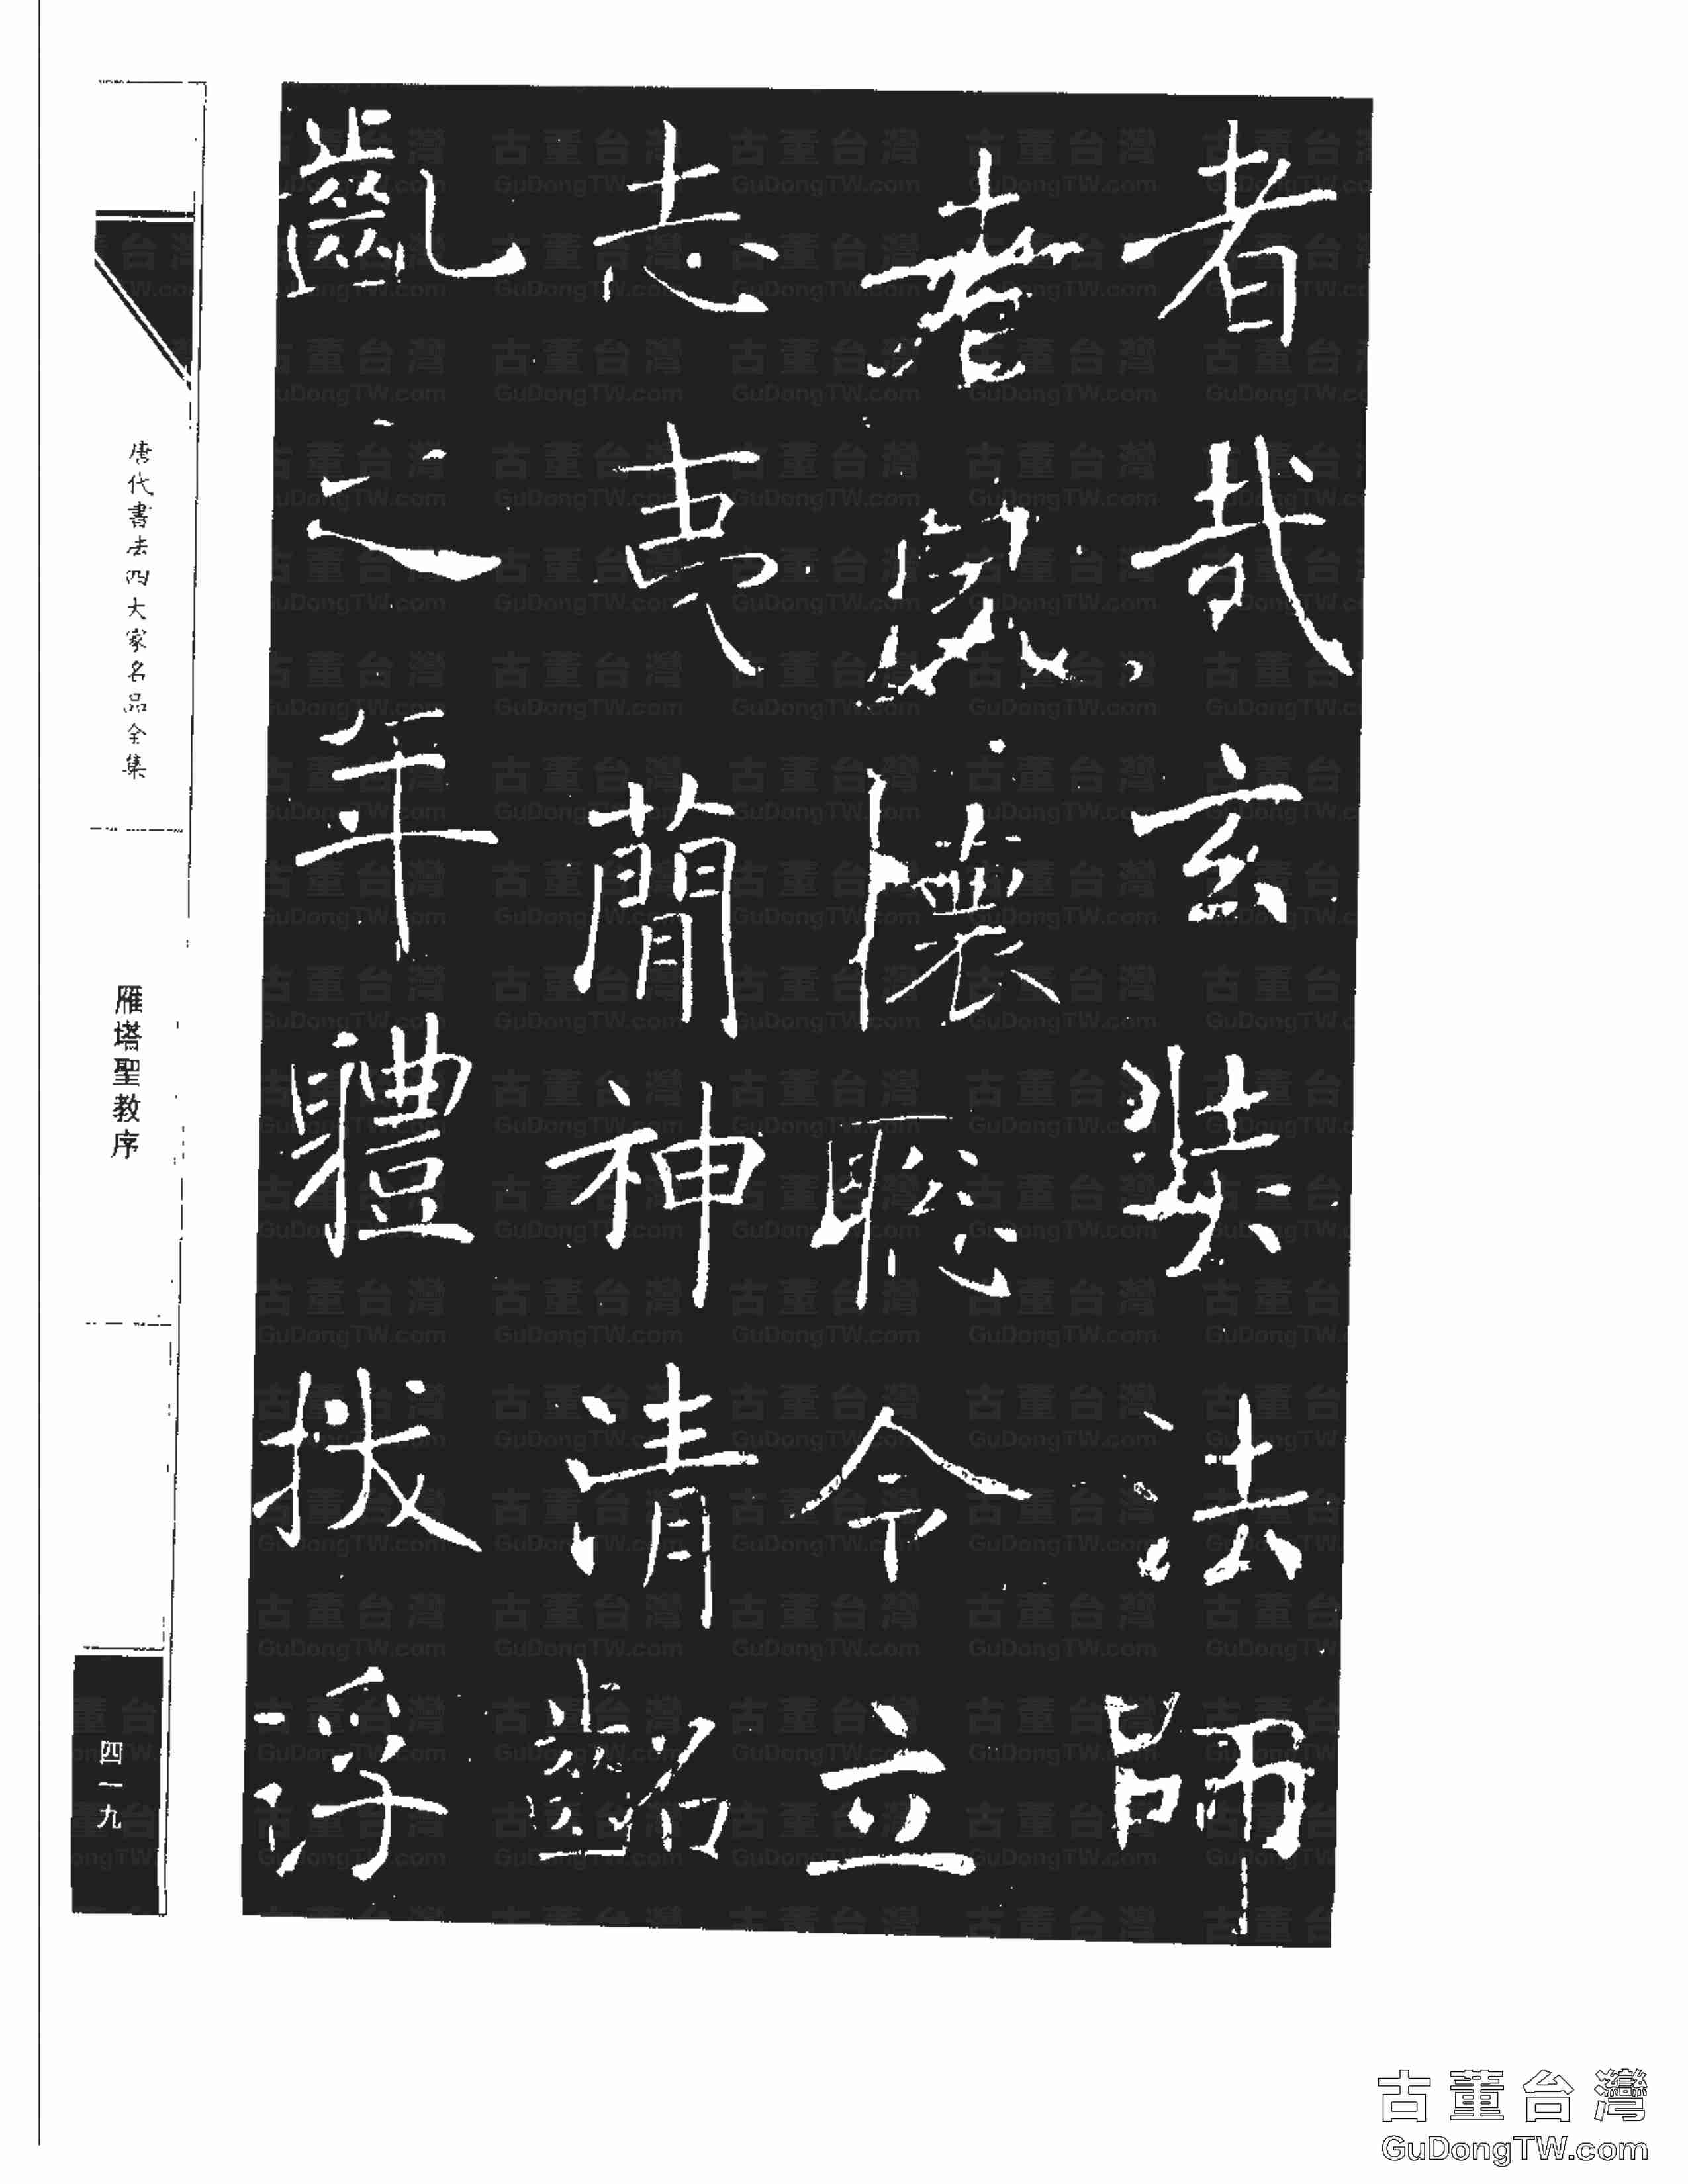 者哉玄奘法師
者夙懷聰令立
志夷蕳神清齠
齓之年體拔浮
唐代書法四大家名品全集
雁塔聖教序
四一九
古董台灣
GuDongTW.com